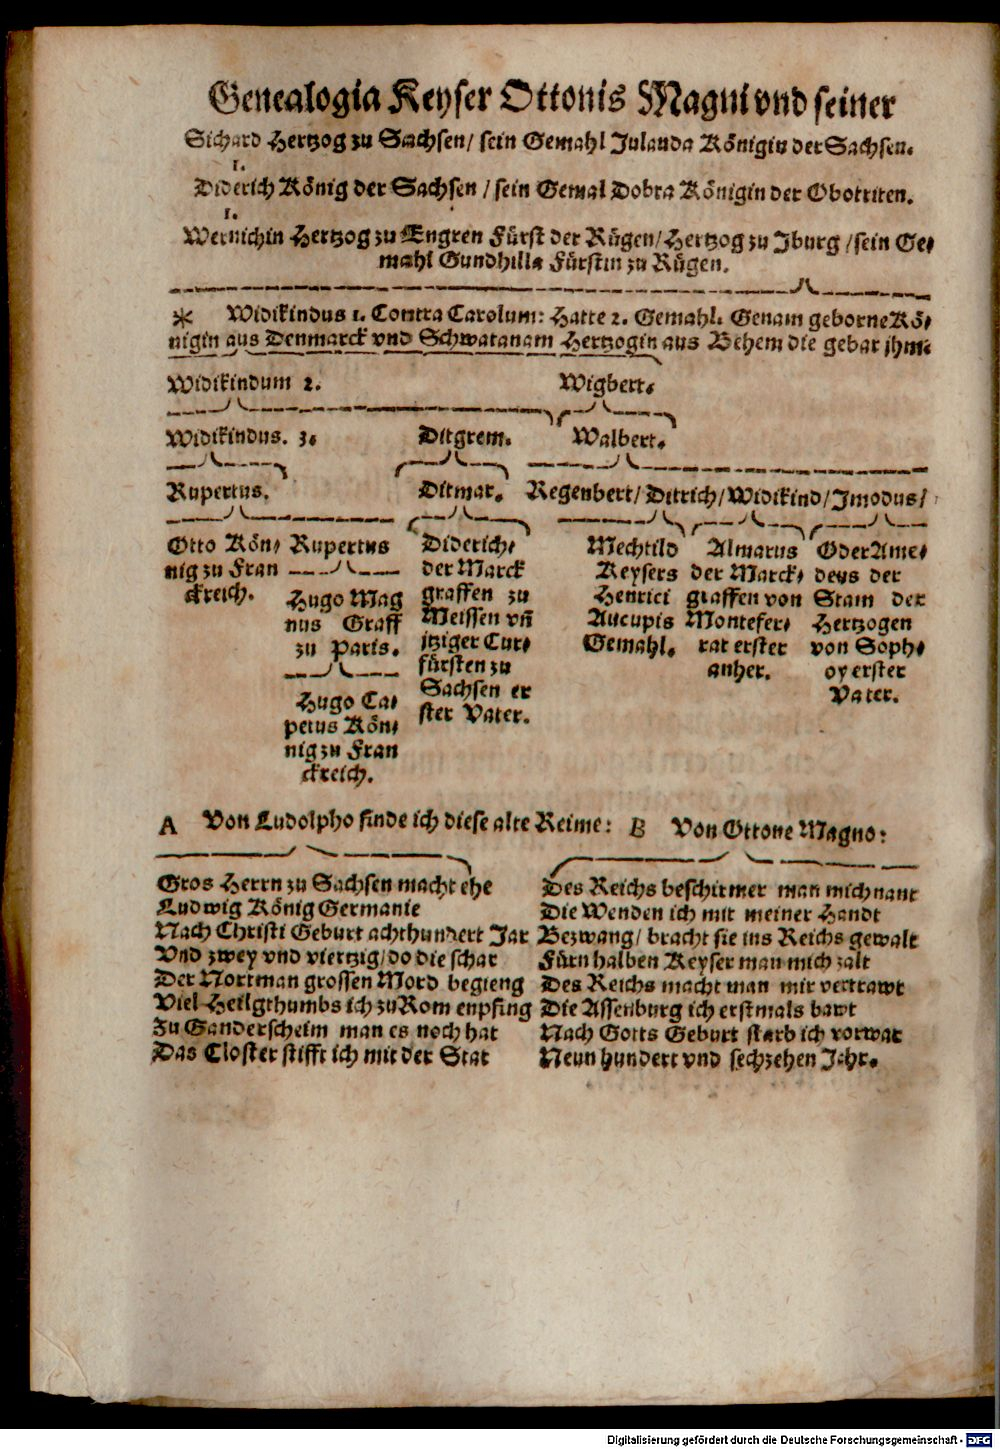 Genealogia Keyser Ottonis Magni vnd seiner
Sichard Hertzog zu Sachsen/ sein Gemahl Julanda Königin der Sachsen.
1.
Diderich König der Sachsen / sein Gemal Dobra Königin der Obotriten.
1.
Wernichin Hertzog zu Engren Fürst der Rügen/ Hertzog zu Jburg / sein Ge⸗
mahl Gundhilla Fürstin zu Rügen.
* Widikindus 1. Contra Carolum: Hatte 2. Gemahl. Genam geborne Kö⸗
nigin aus Denmarck vnd Schwatanam Hertzogin aus Behem die gebar jhm:
Widikindum 2. Wigbert.
Widikindus. 3. Ditgrem. Walbert.
Rupertus. Ditmar. Regenbert/ Ditrich/ Widikind/ Jmodus/
Otto Kön⸗
nig zu Fran
ckreich.
Rupertus
Hugo Mag
nus Graff
zu Paris.
Hugo Ca⸗
petus Kön⸗
nig zu Fran
ckreich.
Diderich⸗
der Marck
graffen zu
Meissen vn̄
jtziger Cur⸗
fürsten zu
Sachsen er
ster Vater.
Mechtild
Keysers
Henrici
Aucupis
Gemahl.
Almarus
der Marck⸗
graffen von
Montefer⸗
rat erster
anher.
Oder Ame⸗
deus der
Stam der
Hertzogen
von Soph⸗
oy erster
Vater.
A Von Ludolpho finde ich diese alte Reime:
Gros Herrn zu Sachsen macht ehe
Ludwig König Germanie
Nach Christi Geburt achthundert Jar
Vnd zwey vnd viertzig/ do die schar
Der Nortman grossen Mord begieng
Viel Heilgthumbs ich zu Rom enpfing
Zu Ganderscheim man es noch hat
Das Closter stifft ich mit der Stat
B Von Ottone Magno:
Des Reichs beschirmer man mich nant
Die Wenden ich mit meiner Handt
Bezwang/ bracht sie ins Reichs gewalt
Fürn halben Keyser man mich zalt
Des Reichs macht man mir vertrawt
Die Assenburg ich erstmals bawt
Nach Gotts Geburt starb ich vorwar
Neun hundert vnd sechzehen Jahr.
Digitalisierung gefördert durch die Deutsche Forschungsgemeinschaft - DFG